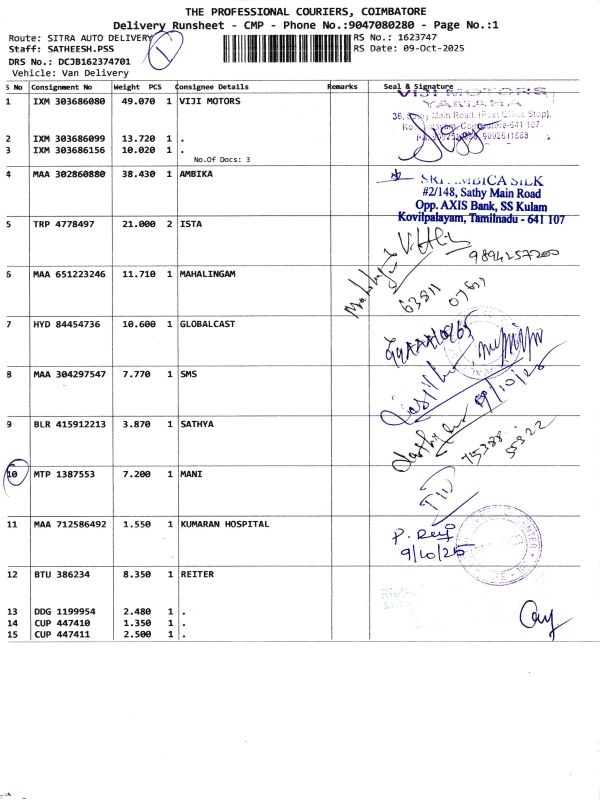 THE PROFESSIONAL COURIERS, COIMBATORE
Delivery Runsheet - CMP - Phone No.:9047080280 - Page No.:1
Route: SITRA AUTO DELIVERY
Staff: SATHEESH.PSS
DRS No.: DCJB162374701
Vehicle: Van Delivery
1
RS No.: 1623747
RS Date: 09-Oct-2025
S No Consignment No Weight PCS Consignee Details Remarks Seal & Signature
1 IXM 303686080 49.070 1 VIJI MOTORS
VIJI MOTORS
YAMAHA
2 IXM 303686099 13.720 1 .
3 IXM 303686156 10.020 1 .
No.Of Docs: 3
4 MAA 302860880 38.430 1 AMBIKA
SRI AMBICA SILK
#2/148, Sathy Main Road
Opp. AXIS Bank, SS Kulam
Kovilpalayam, Tamilnadu - 641 107
5 TRP 4778497 21.000 2 ISTA
9894257200
6 MAA 651223246 11.710 1 MAHALINGAM
63811 07611
7 HYD 84454736 10.600 1 GLOBALCAST
8 MAA 304297547 7.770 1 SMS
9/10/25
9 BLR 415912213 3.870 1 SATHYA
75388 55322
10 MTP 1387553 7.200 1 MANI
11 MAA 712586492 1.550 1 KUMARAN HOSPITAL
9/10/25
12 BTU 386234 8.350 1 REITER
13 DDG 1199954 2.480 1 .
14 CUP 447410 1.350 1 .
15 CUP 447411 2.500 1 .